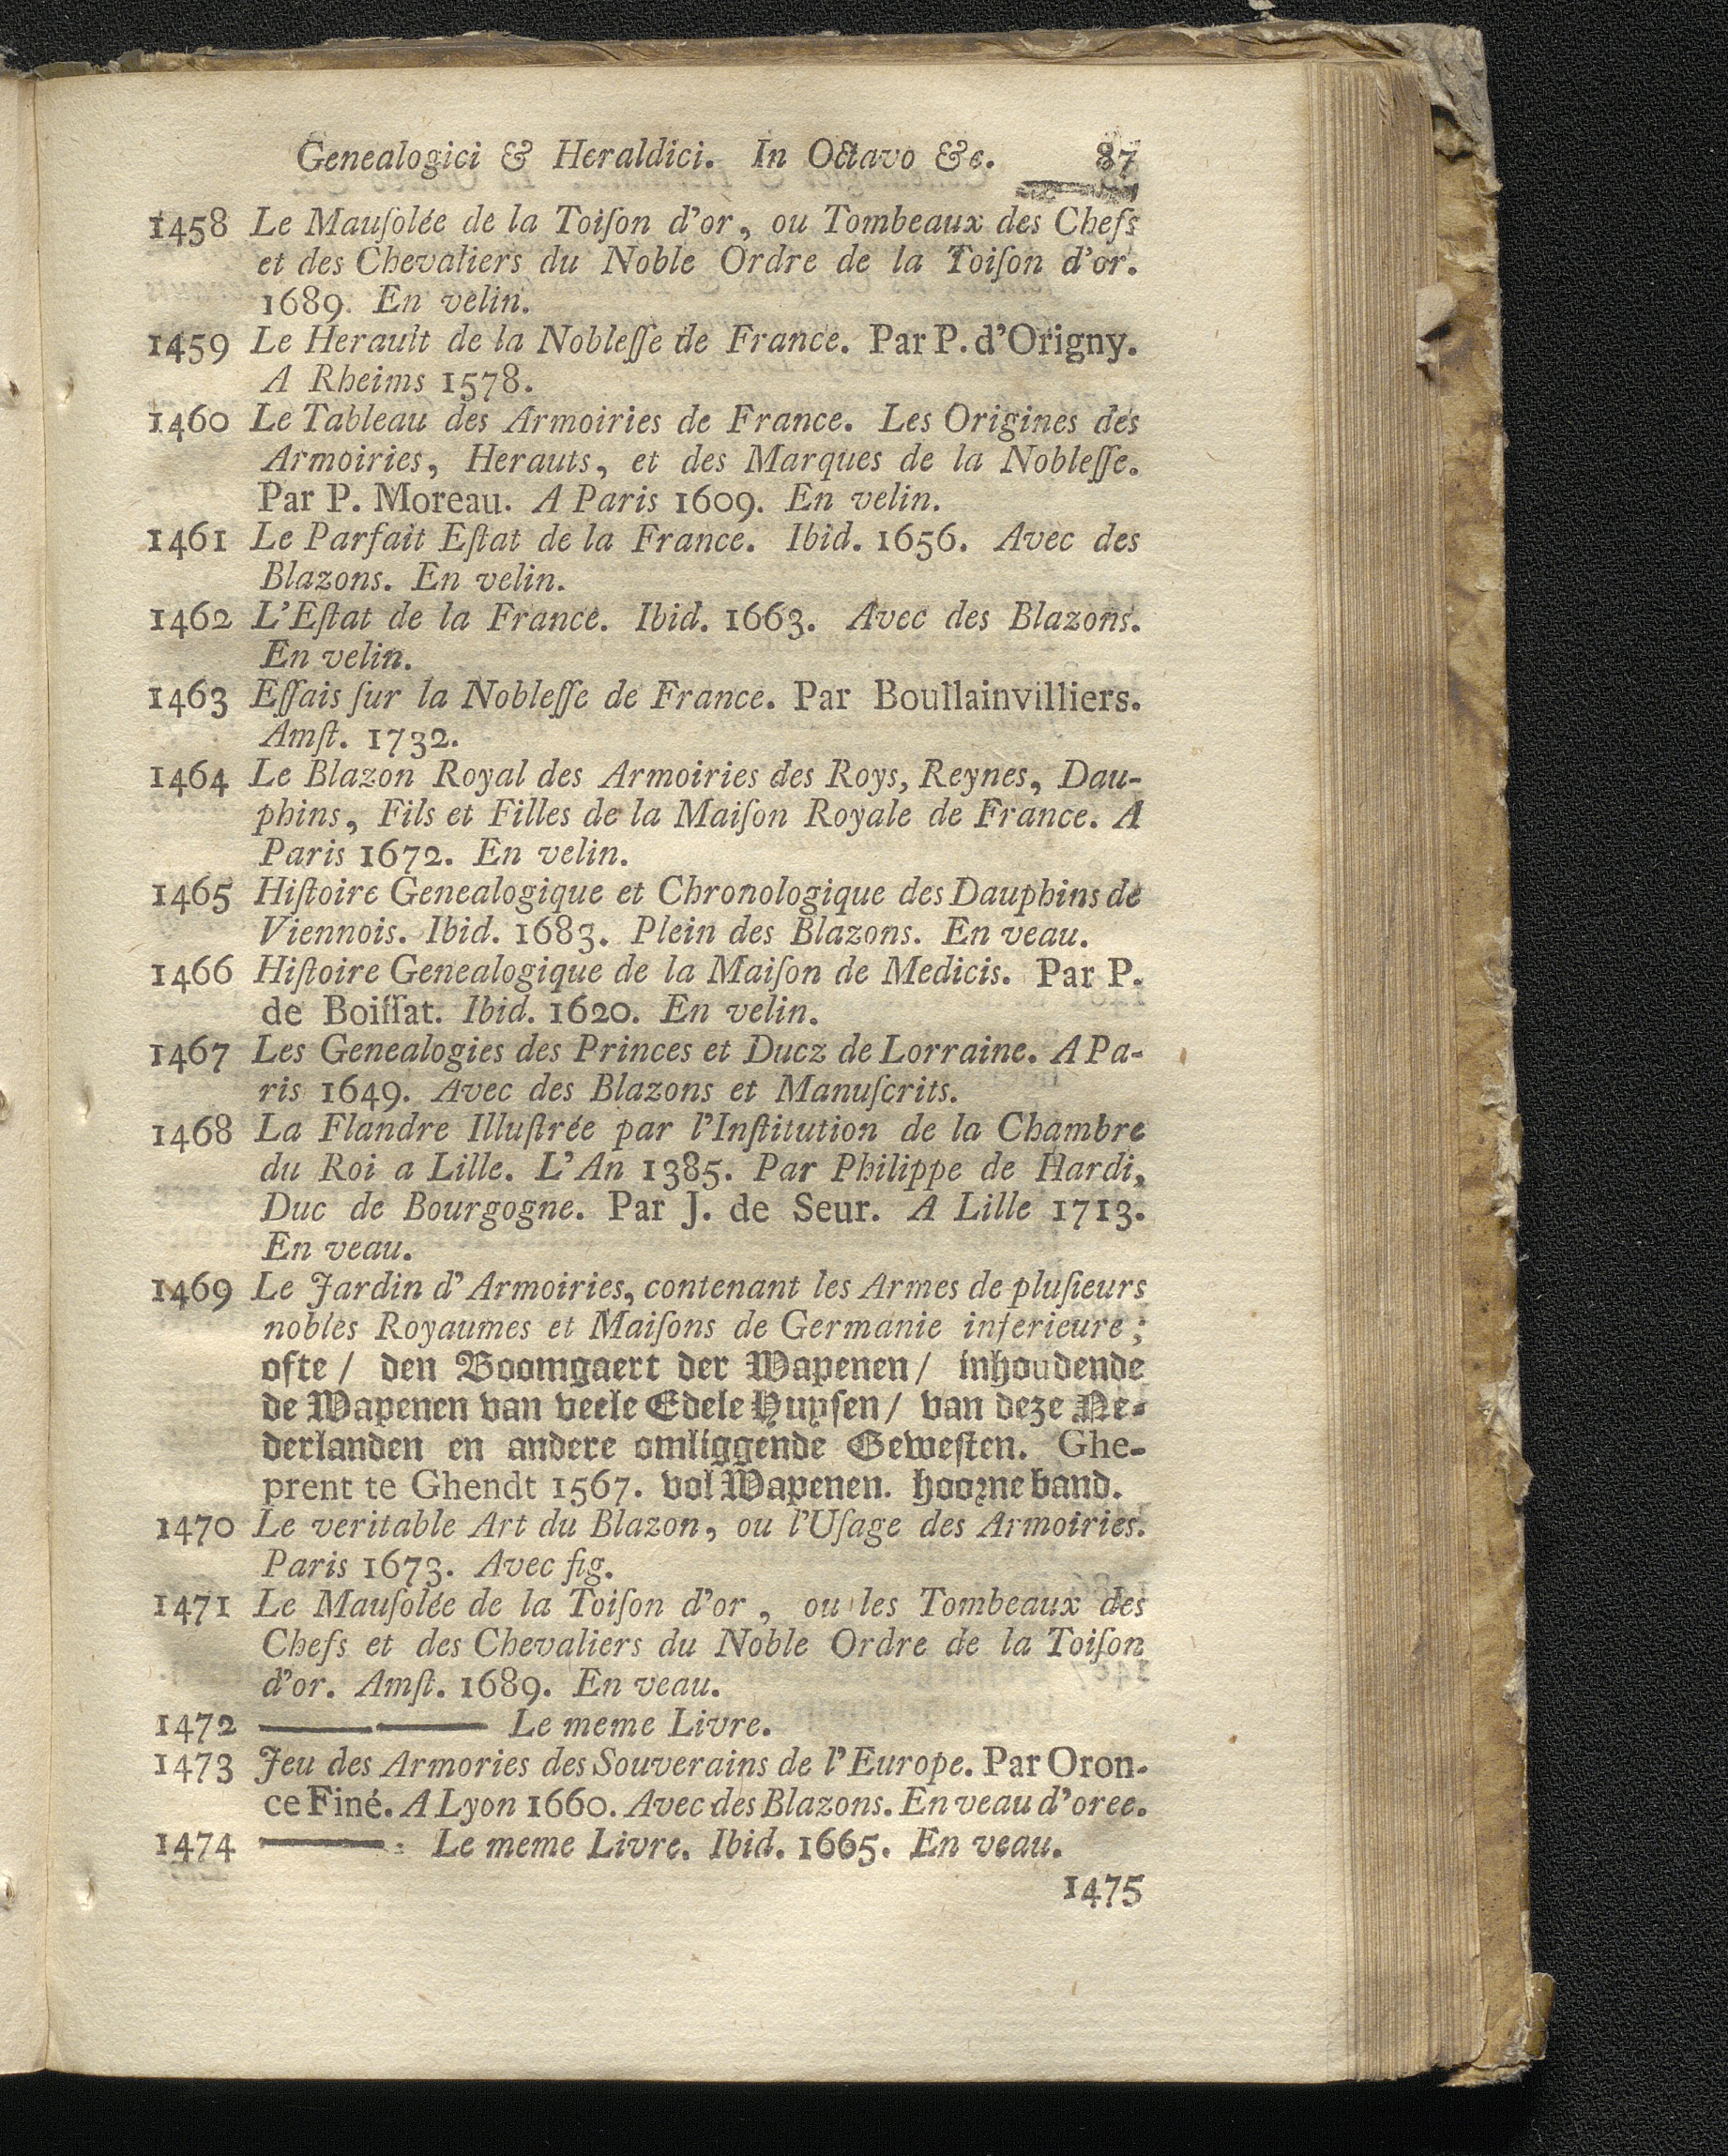 Genealogici & Heraldici. In Octavo &c. 87
1458 Le Mauſolée de la Toiſon d'or, ou Tombeaux des Chefs
et des Chevaliers du Noble Ordre de la Toiſon d'or.
1689. En velin.
1459 Le Herault de la Nobleſſe de France. Par P. d'Origny.
A Rheims 1578.
1460 Le Tableau des Armoiries de France. Les Origines des
Armoiries, Herauts, et des Marques de la Nobleſſe.
Par P. Moreau. A Paris 1609. En velin.
1461 Le Parfait Eſtat de la France. Ibid. 1656. Avec des
Blazons. En velin.
1462 L'Eſtat de la France. Ibid. 1663. Avec des Blazons.
En velin.
1463 Eſſais ſur la Nobleſſe de France. Par Boullainvilliers.
Amſt. 1732.
1464 Le Blazon Royal des Armoiries des Roys, Reynes, Dau-
phins, Fils et Filles de la Maiſon Royale de France. A
Paris 1672. En velin.
1465 Hiſtoire Genealogique et Chronologique des Dauphins de
Viennois. Ibid. 1683. Plein des Blazons. En veau.
1466 Hiſtoire Genealogique de la Maiſon de Medicis. Par P.
de Boiſſat. Ibid. 1620. En velin.
1467 Les Genealogies des Princes et Ducz de Lorraine. A Pa-
ris 1649. Avec des Blazons et Manuſcrits.
1468 La Flandre Illuſtrée par l'Inſtitution de la Chambre
du Roi a Lille. L'An 1385. Par Philippe de Hardi,
Duc de Bourgogne. Par J. de Seur. A Lille 1713.
En veau.
1469 Le Jardin d'Armoiries, contenant les Armes de pluſieurs
nobles Royaumes et Maiſons de Germanie inferieure;
ofte / den Boomgaert der Wapenen / inhoudende
de Wapenen van veele Edele Huyſen / van deze Ne-
derlanden en andere omliggende Geweſten. Ghe-
prent te Ghendt 1567. vol Wapenen. hoorne band.
1470 Le veritable Art du Blazon, ou l'Uſage des Armoiries.
Paris 1673. Avec fig.
1471 Le Mauſolée de la Toiſon d'or, ou les Tombeaux des
Chefs et des Chevaliers du Noble Ordre de la Toiſon
d'or. Amſt. 1689. En veau.
1472 —— —— Le meme Livre.
1473 Jeu des Armories des Souverains de l'Europe. Par Oron-
ce Finé. A Lyon 1660. Avec des Blazons. En veau d'oree.
1474 —— : Le meme Livre. Ibid. 1665. En veau.
1475